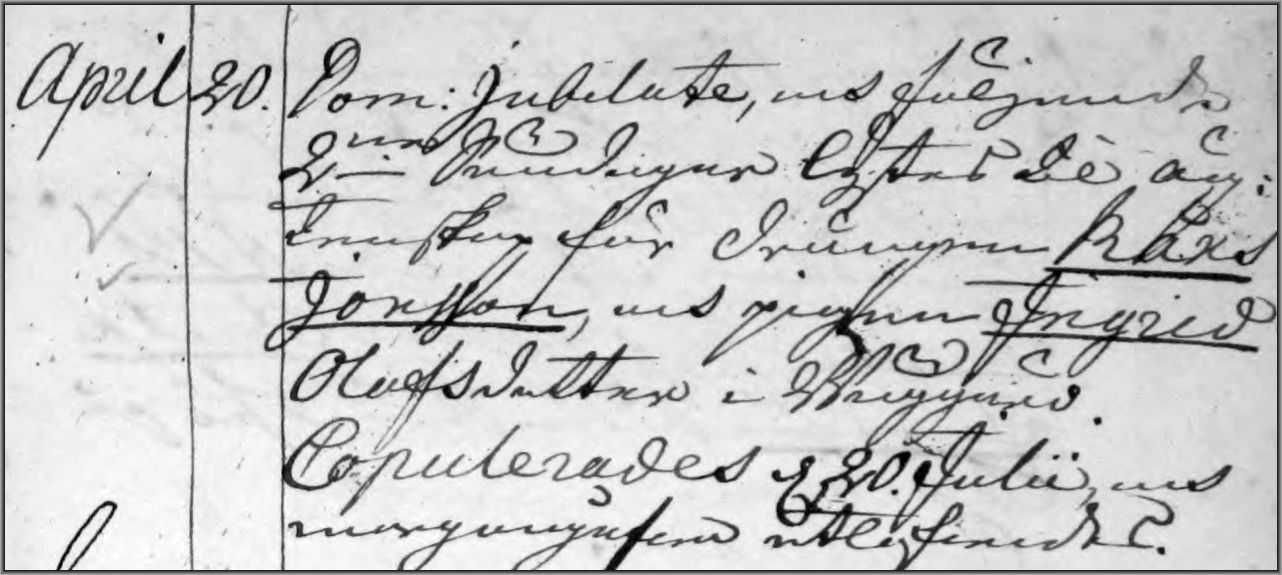 April 20. Dom: Jubilate, och följande
2ne Söndagar lystes til ächt:
enskap för Drängen Måns
Jonsson, och pigan Ingrid
Olofsdotter i Skuggård.
Copulerades d. 20. Julii, och
morgongåfva utlofvades.